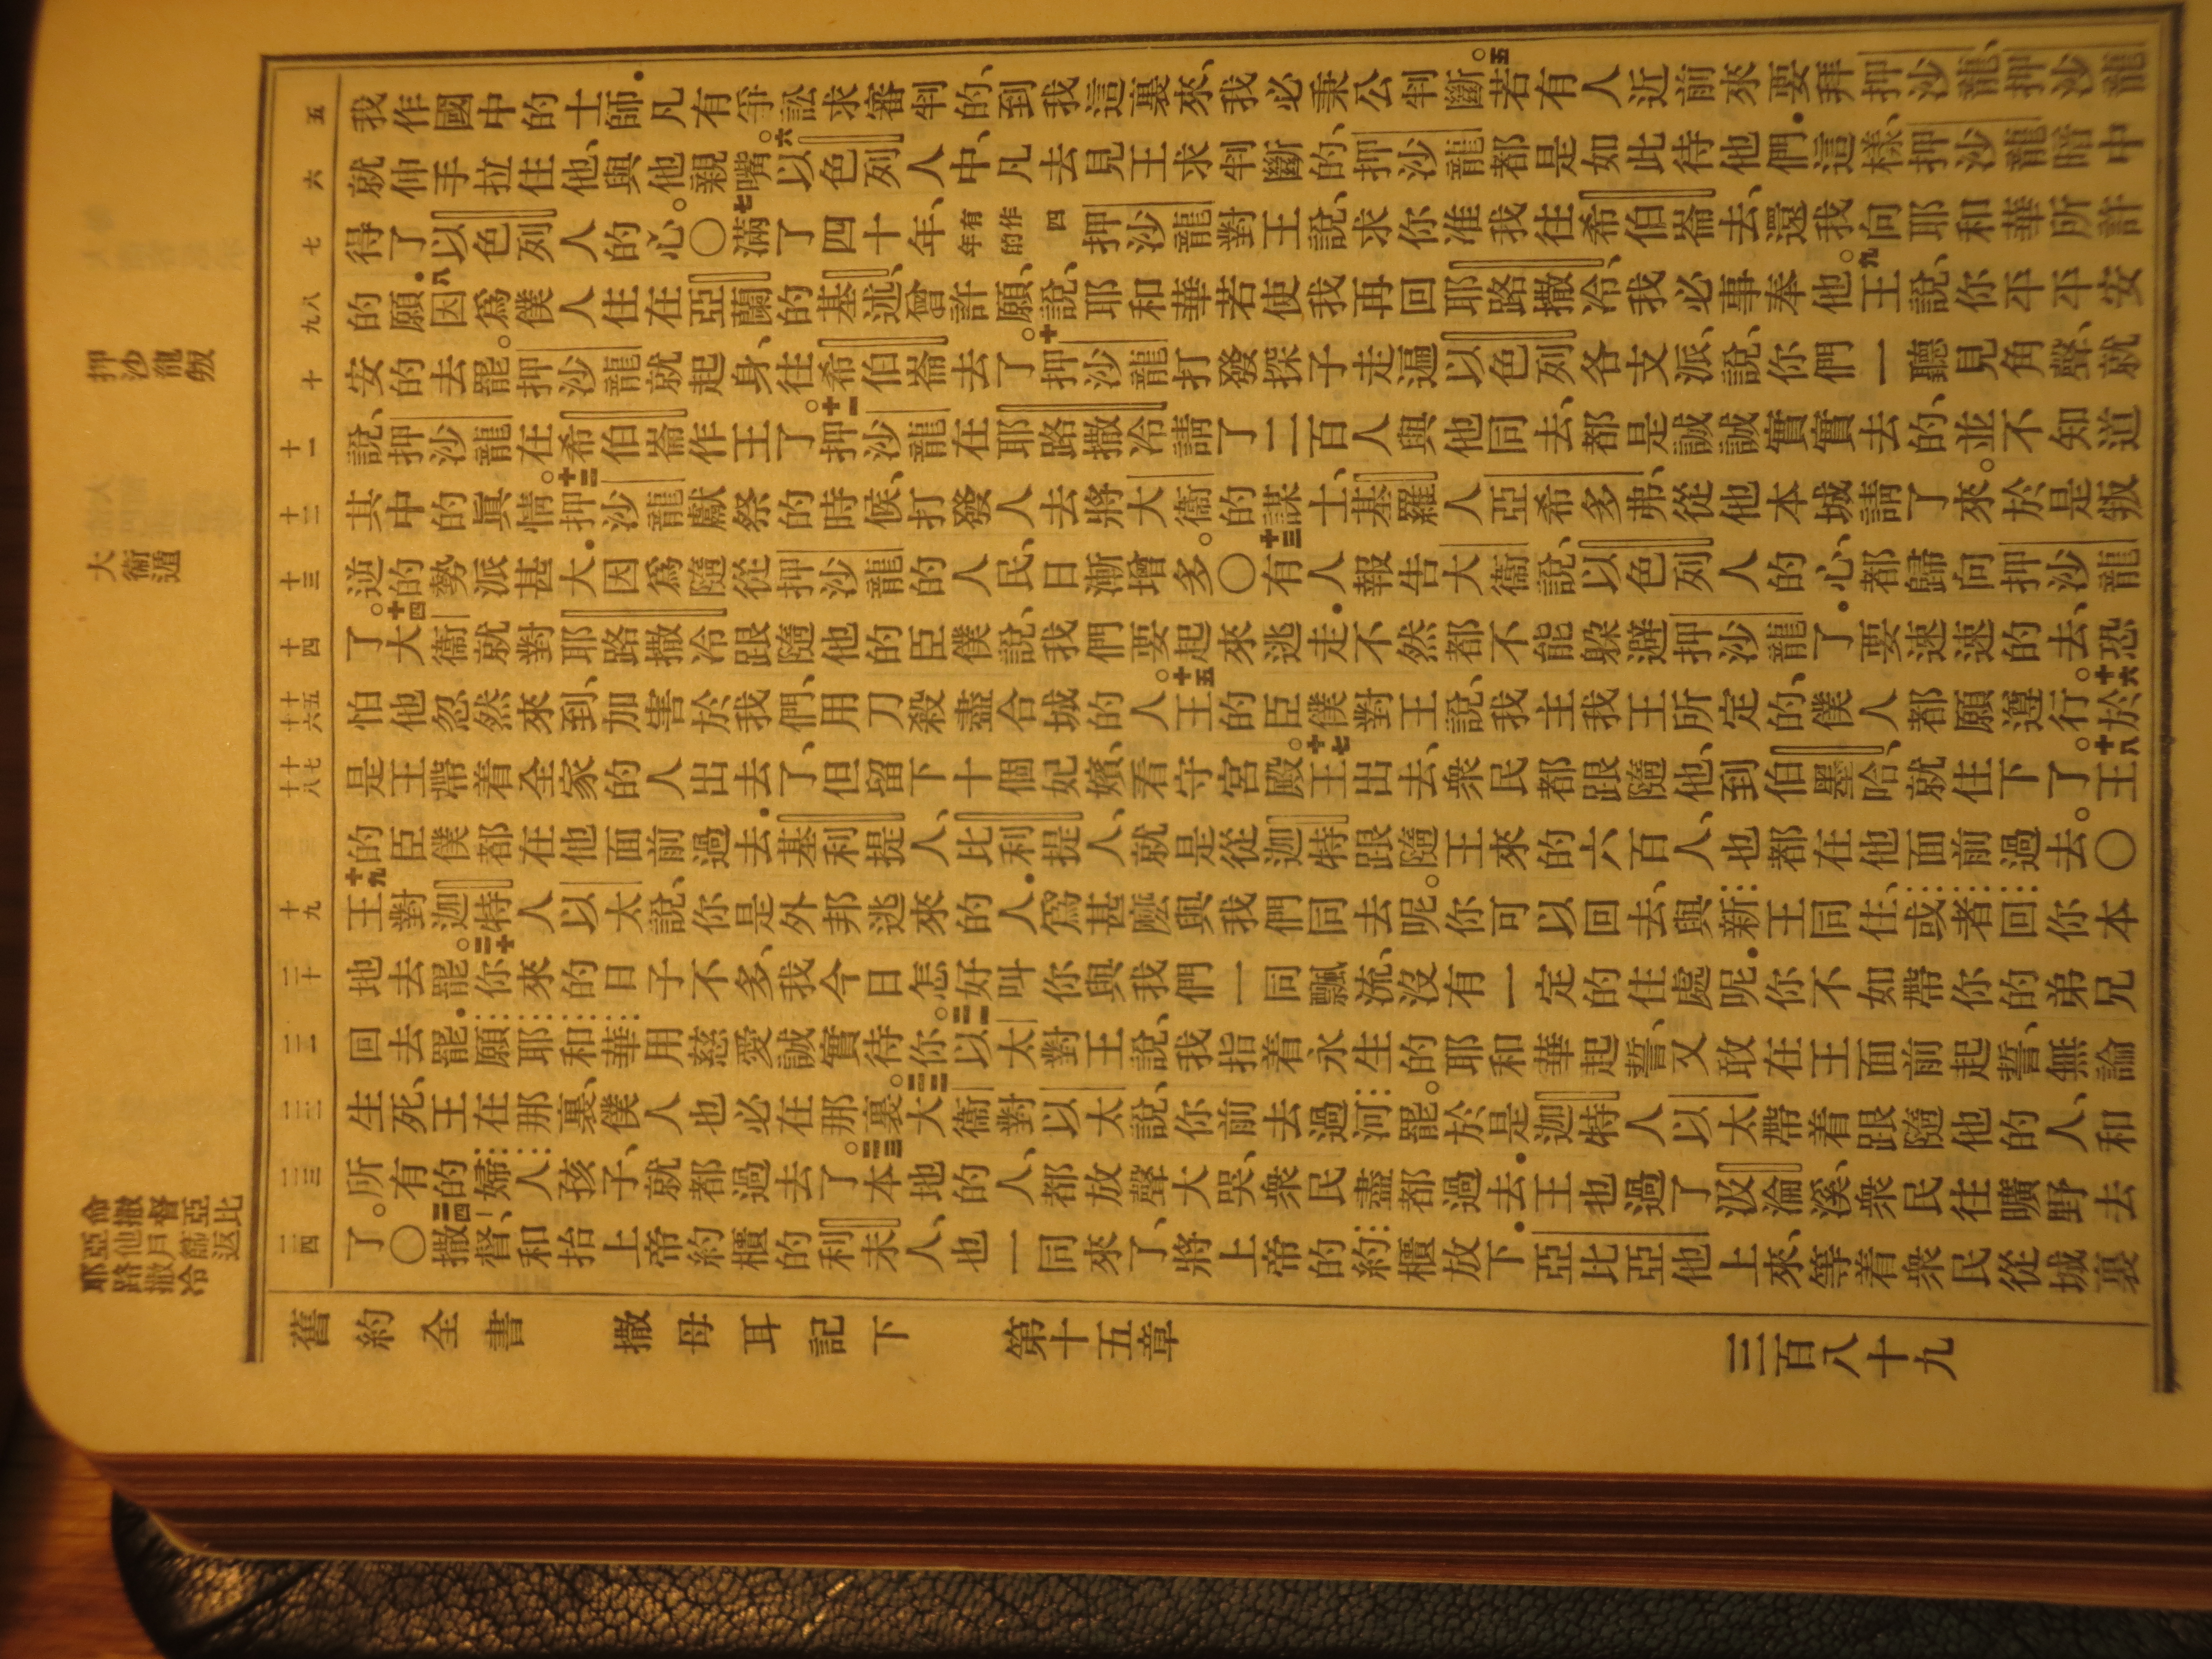 押沙龍叛
大衛遁
命撒督亞比
亞他戶篩返
耶路撒冷
五
我作國中的士師.凡有爭訟求審判的、到我這裏來、我必秉公判斷。五若有人近前來要拜押沙龍、押沙龍
六
就伸手拉住他、與他親嘴。六以色列人中、凡去見王求判斷的、押沙龍都是如此待他們.這樣、押沙龍暗中
七
得了以色列人的心。〇七滿了四十年、有作四年的押沙龍對王說、求你准我往希伯崙去、還我向耶和華所許
八九
的願.八因爲僕人住在亞蘭的基述、曾許願、說、耶和華若使我再回耶路撒冷、我必事奉他。九王說、你平平安
十
安的去罷。押沙龍就起身、往希伯崙去了。十押沙龍打發探子走遍以色列各支派、說、你們一聽見角聲、就
十一
說、押沙龍在希伯崙作王了。十一押沙龍在耶路撒冷請了二百人與他同去、都是誠誠實實去的、並不知道
十二
其中的眞情。十二押沙龍獻祭的時候、打發人去將大衛的謀士、基羅人亞希多弗、從他本城請了來。於是叛
十三
逆的勢派甚大.因爲隨從押沙龍的人民、日漸增多。〇十三有人報告大衛說、以色列人的心、都歸向押沙龍
十四
了。十四大衛就對耶路撒冷跟隨他的臣僕說、我們要起來逃走.不然都不能躲避押沙龍了.要速速的去、恐
十五十六
怕他忽然來到、加害於我們、用刀殺盡合城的人。十五王的臣僕對王說、我主我王所定的、僕人都願遵行。十六於
十七十八
是王帶着全家的人出去了、但留下十個妃嬪、看守宮殿。十七王出去、衆民都跟隨他、到伯墨哈、就住下了。十八王
的臣僕都在他面前過去.基利提人、比利提人、就是從迦特跟隨王來的六百人、也都在他面前過去。〇
十九
十九王對迦特人以太說、你是外邦逃來的人.爲甚麽與我們同去呢。你可以回去、與新王同住、或者回你本
二十
地去罷。二十你來的日子不多、我今日怎好叫你與我們一同飄流、沒有一定的住處呢.你不如帶你的弟兄
二一
回去罷.願耶和華用慈愛誠實待你。二一以太對王說、我指着永生的耶和華起誓、又敢在王面前起誓、無論
二二
生死、王在那裏、僕人也必在那裏。二二大衛對以太說、你前去過河罷。於是迦特人以太帶着跟隨他的人、和
二三
所有的婦人孩子、就都過去了。二三本地的人、都放聲大哭、衆民盡都過去.王也過了汲淪溪、衆民往曠野去
二四
了。〇二四撒督、和抬上帝約櫃的利未人、也一同來了、將上帝的約櫃放下.亞比亞他上來、等着衆民從城裏
舊約全書 撒母耳記下 第十五章 三百八十九